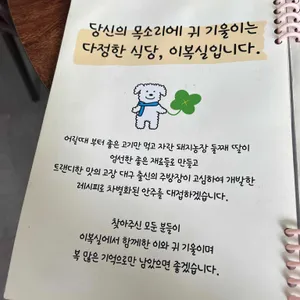 당신의 목소리에 귀 기울이는
다정한 식당, 이복실입니다.
어릴때 부터 좋은 고기만 먹고 자란 돼지농장 둘째 딸이
엄선한 좋은 재료들로 만들고
트랜디한 맛의 고장 대구 출신의 주방장이 고심하여 개발한
레시피로 차별화된 안주를 대접하겠습니다.
찾아주신 모든 분들이
이복실에서 함께한 이와 귀 기울이며
복 많은 기억으로만 남았으면 좋겠습니다.